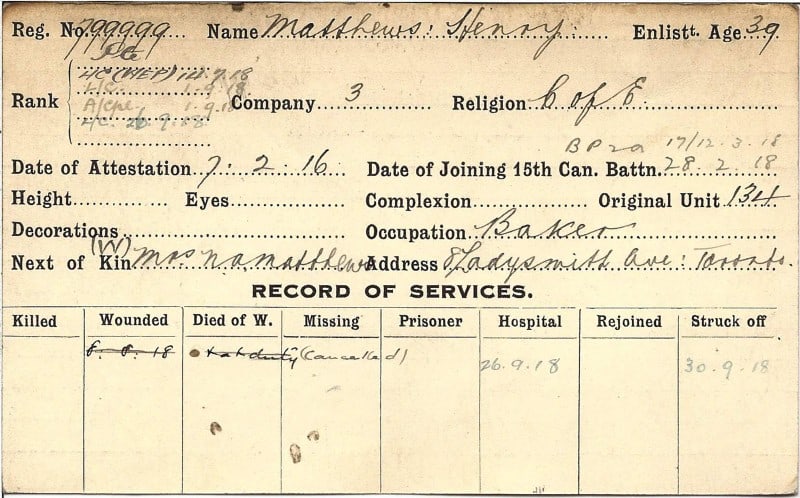 Reg. No. 799999 Name Matthews: Henry: Enlistt. Age 39
Pte
L/C (WEP) 7.18
L/C. 1.9.18
Rank A/Cpl. 1.9.18 Company 3 Religion C of E.
L/C. 26.9.18
B P 2a 17/12.3.18
Date of Attestation 7.2.16 Date of Joining 15th Can. Battn. 28.2.18
Height Eyes Complexion Original Unit 134
Decorations Occupation Baker
(W)
Next of Kin Mrs N.A. Matthews Address 8 Ladysmith Ave: Toronto.
RECORD OF SERVICES.
Killed Wounded Died of W. Missing Prisoner Hospital Rejoined Struck off
8.8.18 at duty (Cancelled)
26.9.18 30.9.18